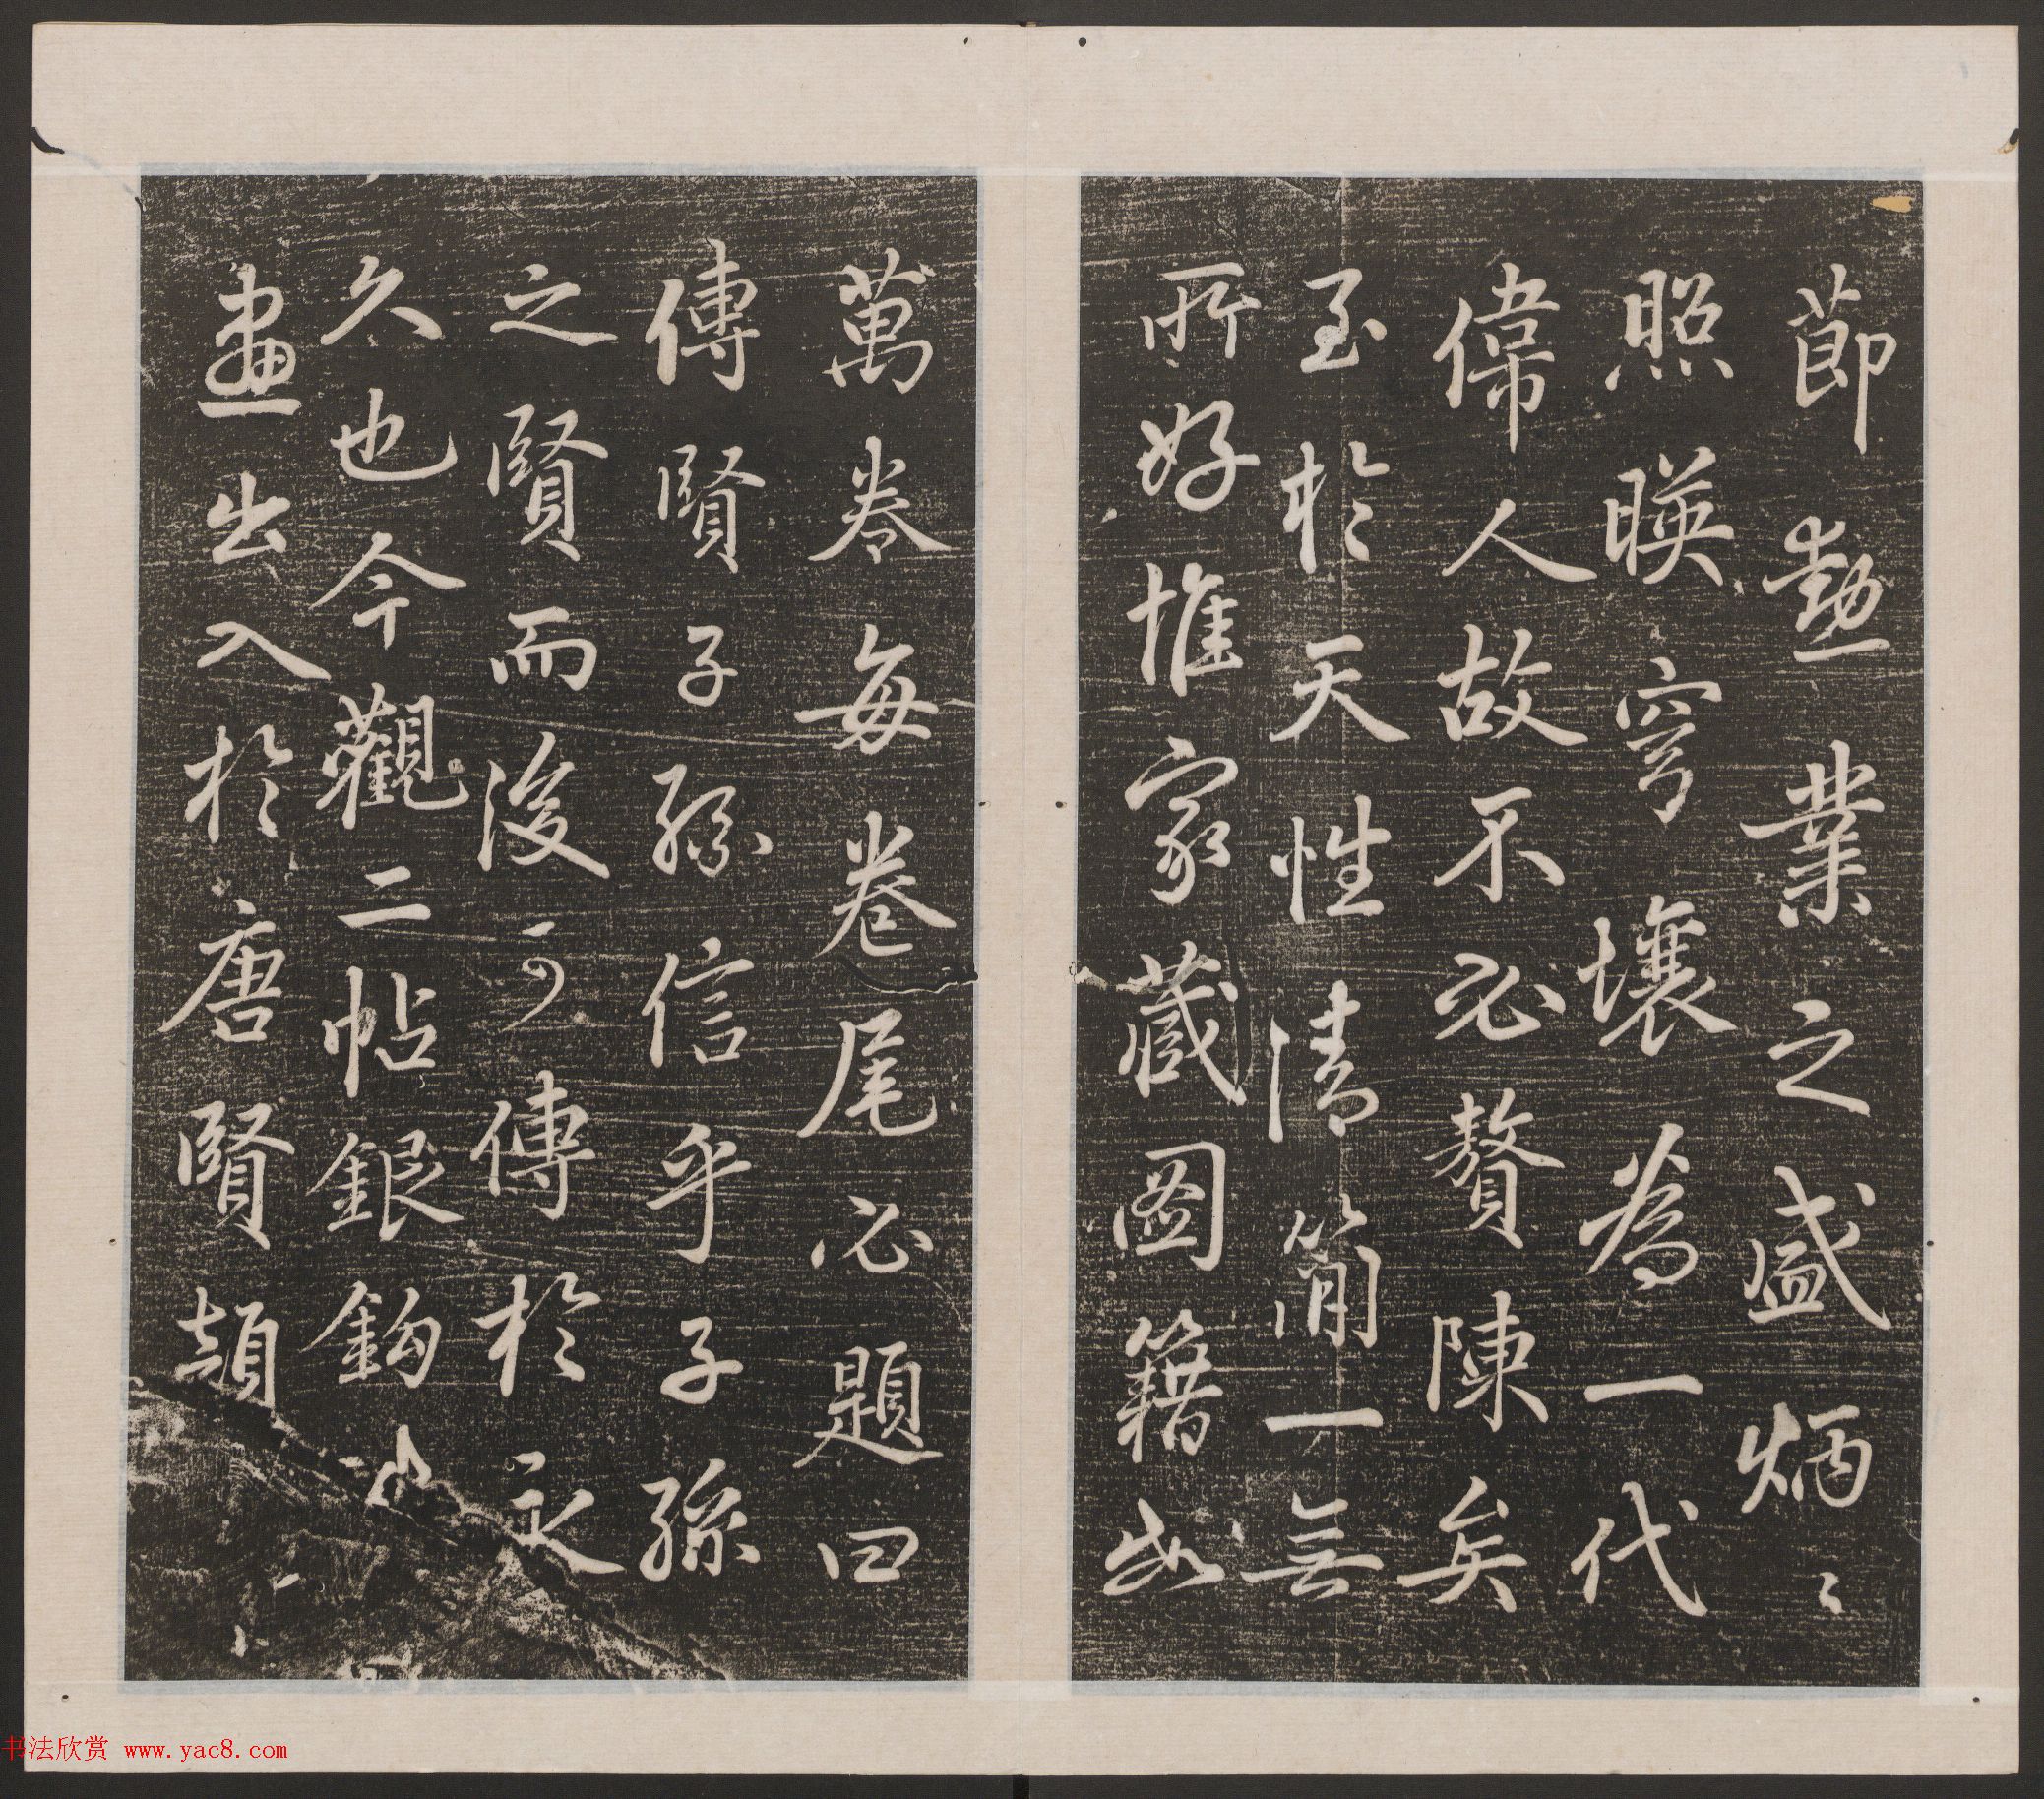 節勳業之盛炳〻
照暎穹壤為一代
偉人故不必贅陳矣
至於天性清簡一無
所好惟家藏图籍如
萬卷每卷尾必題曰
傳賢子孫信乎子孫
之賢而後可傳於永
久也今觀二帖銀鈎
畫出入於唐賢頡
书法欣赏 www.yac8.com